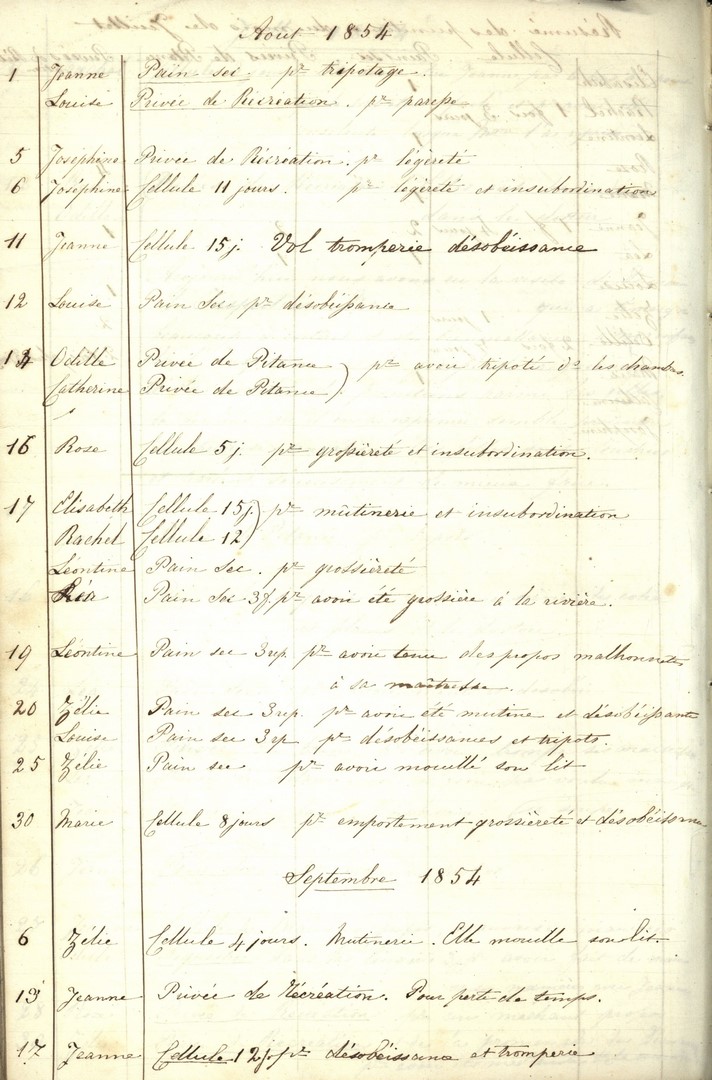 Aout 1854
1 Jeanne Pain sec. pr tripotage.
Louise Privée de Récréation. pr
5 Joséphine Privée de Récréation. pr légèreté
6 Joséphine Cellule 11 jours. pr légèreté et insubordination
11 Jeanne Cellule 15 j. Vol tromperie désobéissance
12 Louise Pain sec pr désobéissance
14 Odille Privée de Pitance ) pr avoir tripoté ds les chambres
Catherine Privée de Pitance )
16 Rose Cellule 5 j. pr grossièreté et insubordination.
17 Elisabeth Cellule 15 j. ) pr mutinerie et insubordination
Rachel Cellule 12 )
Léontine Pain sec. pr grossièreté
Pain sec 3 j. pr avoir été grossière à la rivière.
19 Léontine Pain sec 3 rep. pr avoir tenu des propos malhonnêtes
à sa maîtresse.
20 Zélie Pain sec 3 rep. pr avoir été mutine et désobéissante
Louise Pain sec 3 rep pr désobéissances et tripots.
25 Zélie Pain sec pr avoir mouillé son lit
30 Marie Cellule 8 jours pr emportement grossièreté et désobéissance
Septembre 1854
6 Zélie Cellule 4 jours. Mutinerie. Elle mouille son lit.
13 Jeanne Privée de Récréation. Pour perte de temps.
17 Jeanne Cellule 12 jo pr désobéissance et tromperie